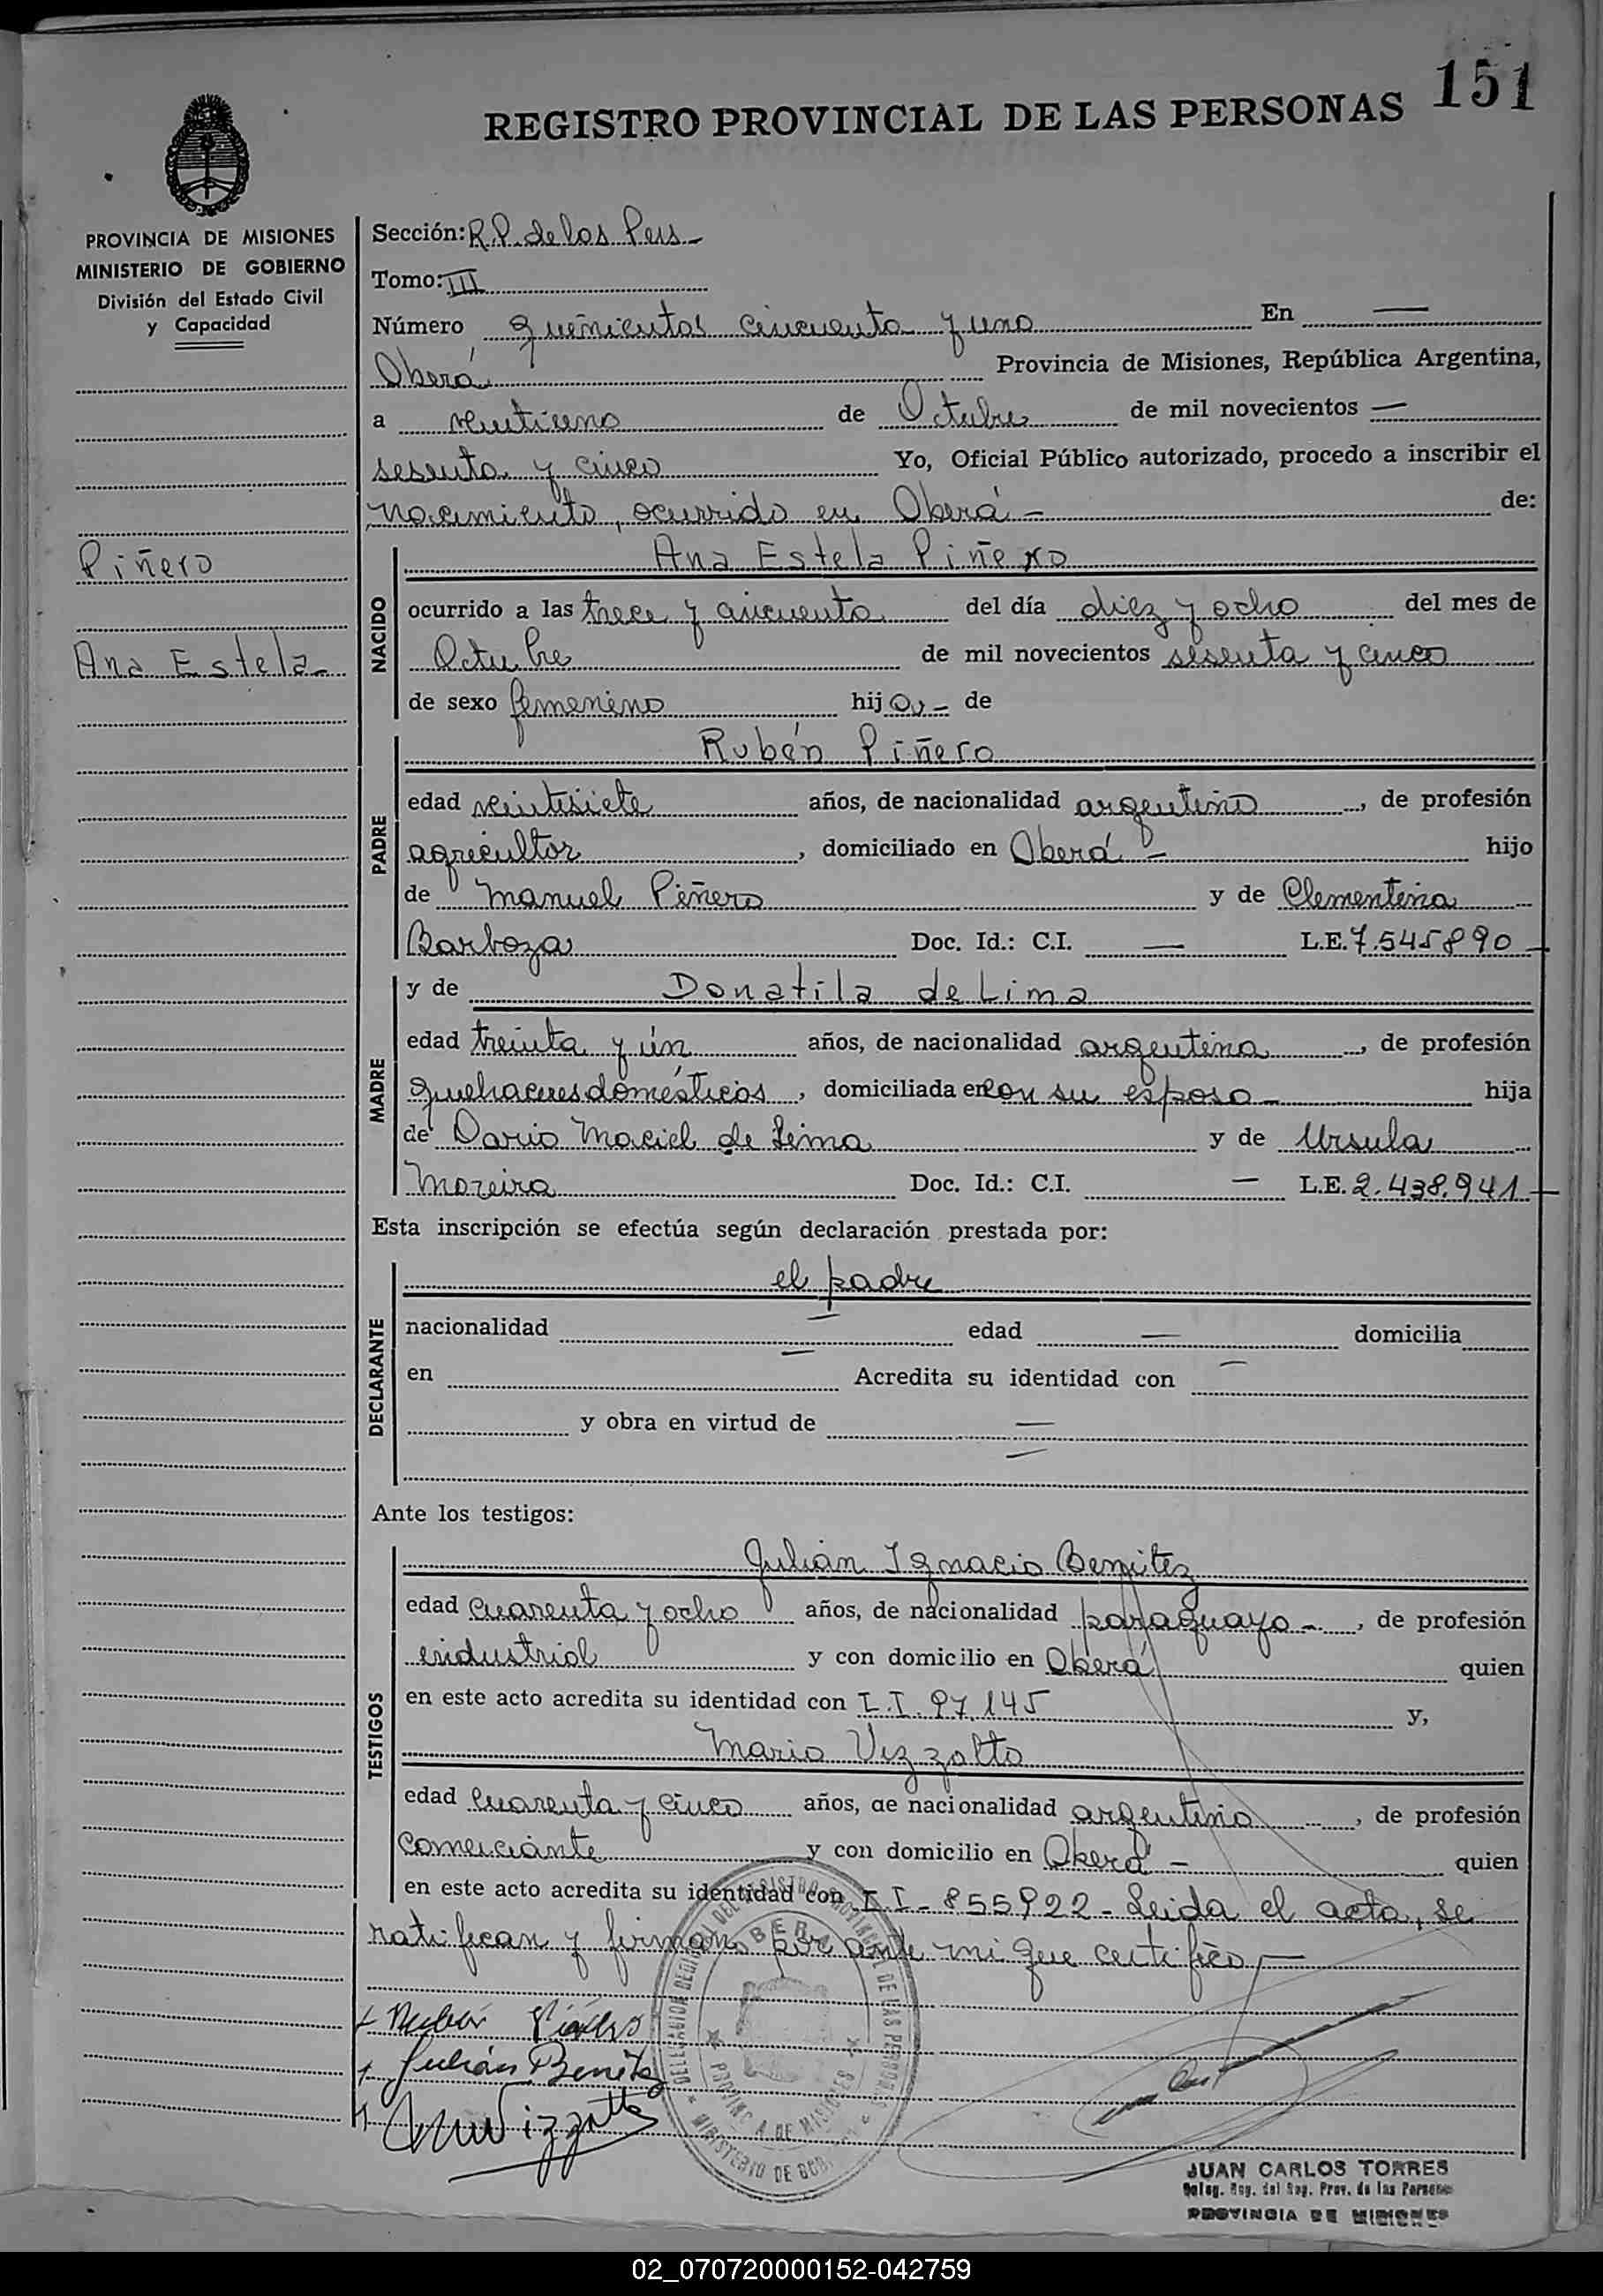 151
REGISTRO PROVINCIAL DE LAS PERSONAS
PROVINCIA DE MISIONES
MINISTERIO DE GOBIERNO
División del Estado Civil
y Capacidad
Piñero
Ana Estela
Sección: R.P. de las Pers
Tomo: III
Número quinientos cincuenta y uno En —
Oberá Provincia de Misiones, República Argentina,
a veintiuno de Octubre de mil novecientos —
sesenta y cinco Yo, Oficial Público autorizado, procedo a inscribir el
nacimiento, ocurrido en Oberá — de:
NACIDO
Ana Estela Piñero
ocurrido a las trece y cincuenta del día diez y ocho del mes de
Octubre de mil novecientos sesenta y cinco
de sexo femenino hija — de
PADRE
Rubén Piñero
edad veintisiete años, de nacionalidad argentino, de profesión
agricultor, domiciliado en Oberá — hijo
de Manuel Piñero y de Clementina
Barboza Doc. Id.: C.I. — L.E. 7.545890 —
MADRE
y de Donatila de Lima
edad treinta y ún años, de nacionalidad argentina, de profesión
quehaceres domésticos, domiciliada en con su esposo — hija
de Dario Maciel de Lima y de Ursula
Moreira Doc. Id.: C.I. — L.E. 2.438.941 —
Esta inscripción se efectúa según declaración prestada por:
DECLARANTE
el padre
nacionalidad — edad — domicilia
en — Acredita su identidad con —
y obra en virtud de —
—
Ante los testigos:
TESTIGOS
Julián Ignacio Benítez
edad cuarenta y ocho años, de nacionalidad paraguayo —, de profesión
industrial y con domicilio en Oberá quien
en este acto acredita su identidad con I.I. 97.145 y,
Mario Vizzolto
edad cuarenta y cinco años, de nacionalidad argentino, de profesión
comerciante y con domicilio en Oberá — quien
en este acto acredita su identidad con I.I — 855922 — Leida el acta, se
ratifican y firman por ante mi que certifico —
Rubén Piñero
Julián Benítez
Vizzotto
DELEGACION REGIONAL DEL REGISTRO PROVINCIAL DE LAS PERSONAS
OBERA
PROVINCIA DE MISIONES
MINISTERIO DE GOB
JUAN CARLOS TORRES
Deleg. Reg. del Reg. Prov. de las Personas
PROVINCIA DE MISIONES
02_070720000152-042759